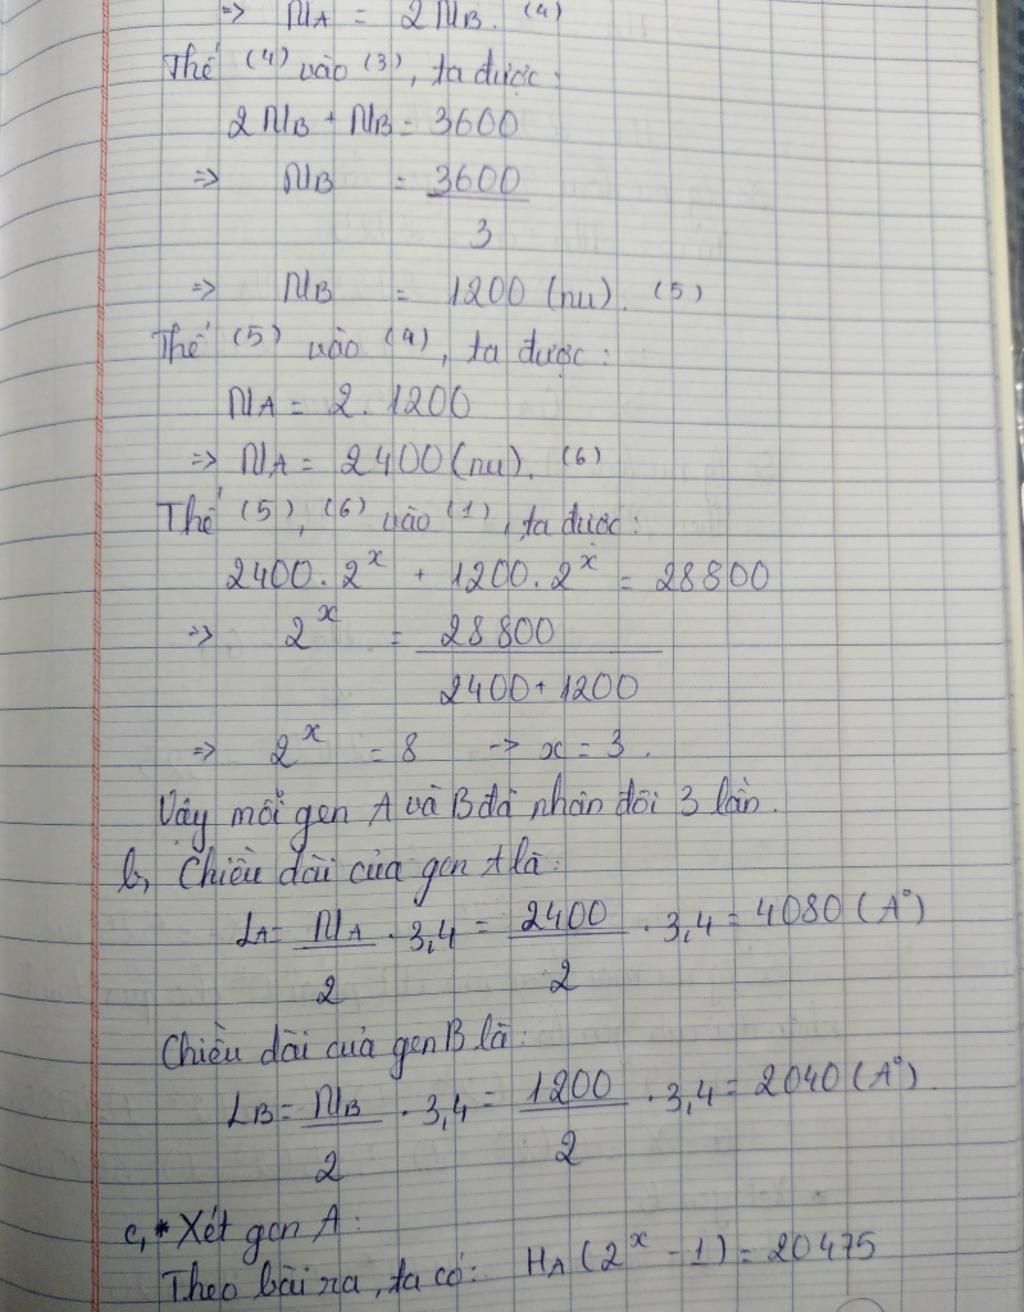 => NA = 2 NB. (4)
Thế (4) vào (3), ta được:
2 NB + NB = 3600
=> NB = 3600
3
=> NB = 1200 (nu). (5)
Thế (5) vào (4), ta được:
NA = 2. 1200
=> NA = 2400 (nu). (6)
Thế (5), (6) vào (1), ta được:
2400. 2^x + 1200. 2^x = 28800
=> 2^x = 28800
2400 + 1200
=> 2^x = 8 -> x = 3.
Vậy mỗi gen A và B đã nhân đôi 3 lần.
b, Chiều dài của gen A là:
LA = NA . 3,4 = 2400 . 3,4 = 4080 (A°)
2 2
Chiều dài của gen B là:
LB = NB . 3,4 = 1200 . 3,4 = 2040 (A°).
2 2
c, * Xét gen A:
Theo bài ra, ta có: HA (2^x - 1) = 20475